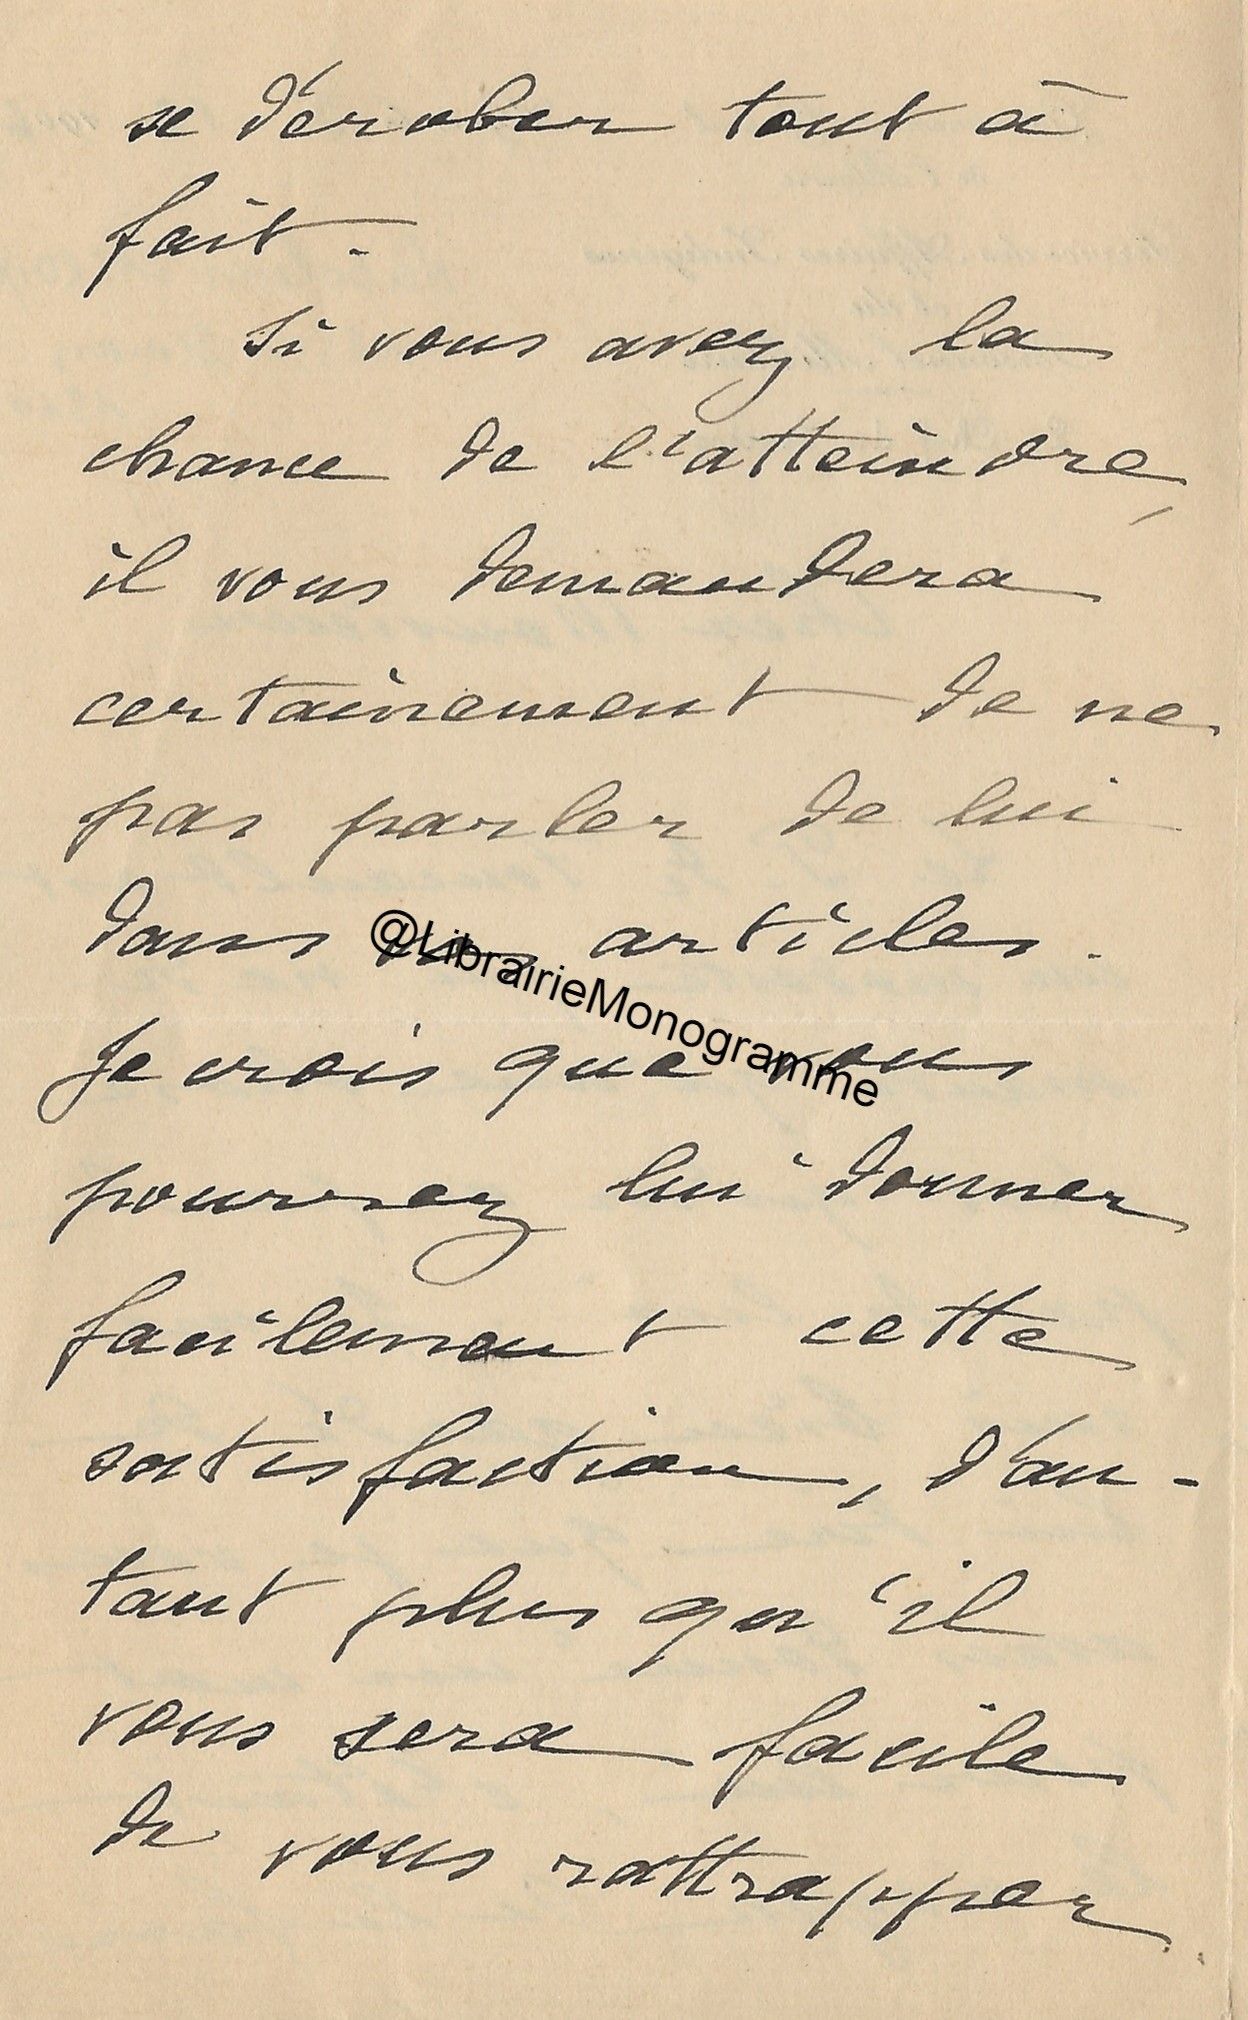 se dérober tout à
fait.
Si vous avez la
chance de l'atteindre,
il vous demandera
certainement de ne
pas parler de lui
dans vos articles.
@LibrairieMonogramme
Je crois que vous
pourrez lui donner
facilement cette
satisfaction, d'au-
tant plus qu'il
vous sera facile
de vous rattrapper